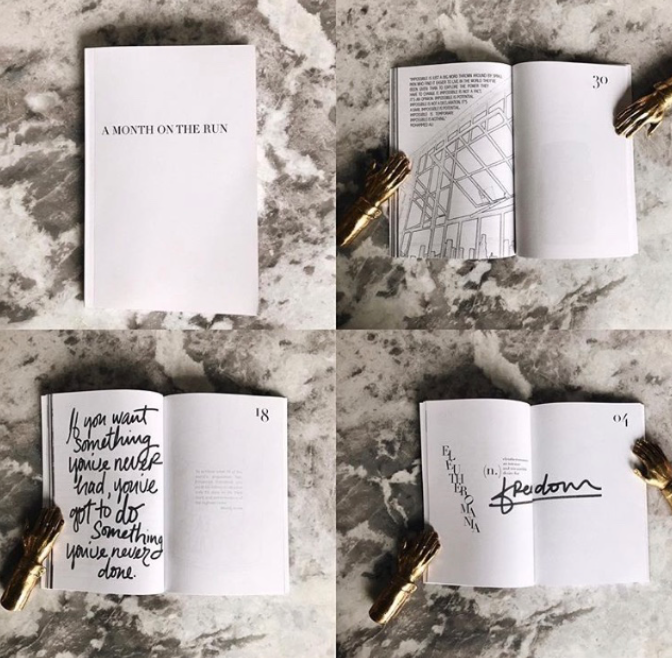 A MONTH ON THE RUN
"IMPOSSIBLE IS JUST A BIG WORD THROWN AROUND BY SMALL
MEN WHO FIND IT EASIER TO LIVE IN THE WORLD THEY'VE
BEEN GIVEN THAN TO EXPLORE THE POWER THEY
HAVE TO CHANGE IT. IMPOSSIBLE IS NOT A FACT.
IT'S AN OPINION. IMPOSSIBLE IS POTENTIAL.
IMPOSSIBLE IS NOT A DECLARATION. IT'S
A DARE. IMPOSSIBLE IS POTENTIAL.
IMPOSSIBLE IS TEMPORARY.
IMPOSSIBLE IS NOTHING."
30
If you want
Something
you've never
had, you've
got to do
Something
you've never
done.
18
ELEUTHEROMANIA
(n.)
freedom
04